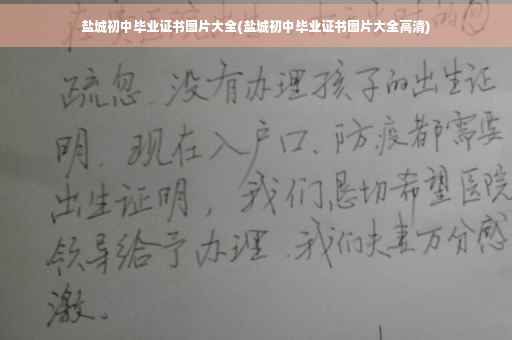 盐城初中毕业证书图片大全(盐城初中毕业证书图片大全高清)
疏忽.没有办理孩子的出生证
明.现在入户口、防疫都需要
出生证明，我们恳切希望医院
领导给予办理.我们夫妻万分感
激。